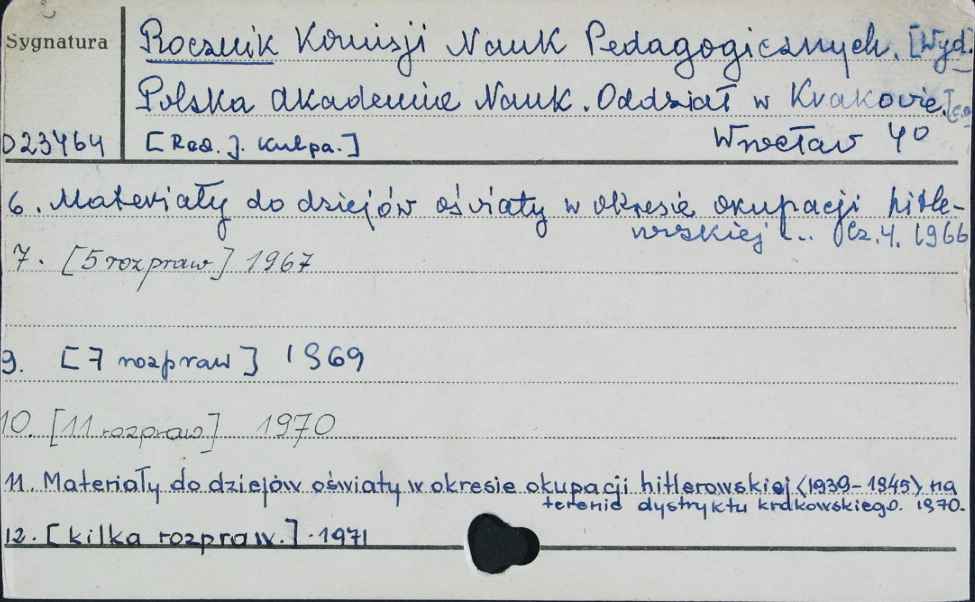 Sygnatura
Rocznik Komisji Nauk Pedagogicznych. [Wyd.
Polska Akademia Nauk. Oddział w Krakowie.
D23464 [Red. J. Kulpa.] Wrocław 4º
6. Materiały do dziejów oświaty w okresie okupacji hitle-
rowskiej ... Cz. 4. 1966
7. [5 rozpraw] 1967
9. [7 rozpraw] 1969
10. [11 rozpraw] 1970
11. Materiały do dziejów oświaty w okresie okupacji hitlerowskiej (1939-1945) na
terenie dystryktu krakowskiego. 1970.
12. [kilka rozpraw.] . 1971